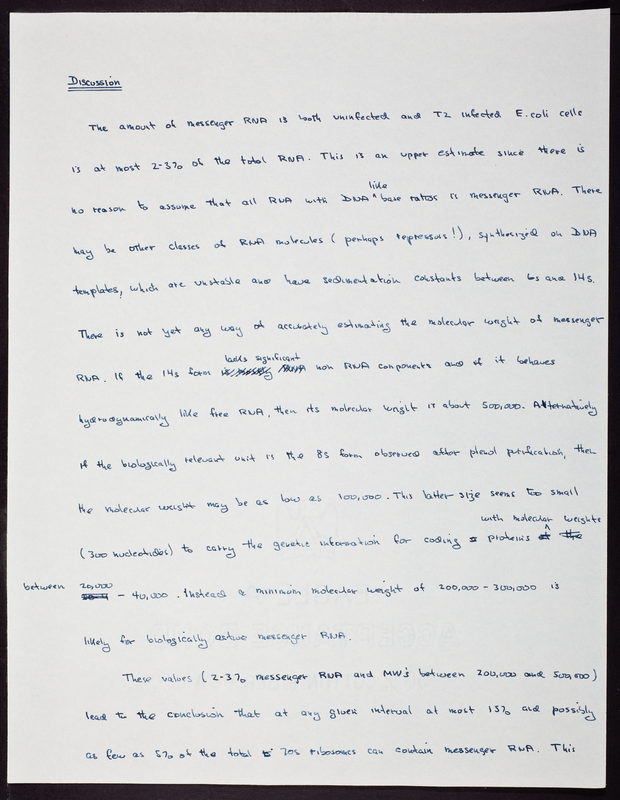 Discussion
The amount of messenger RNA is both uninfected and T2 infected E.coli cells
is at most 2-3% of the total RNA. This is an upper estimate since there is
like
no reason to assume that all RNA with DNA ^ base ratios is messenger RNA. There
may be other classes of RNA molecules (perhaps repressors!), synthesized on DNA
templates, which are unstable and have sedimentation constants between 6s and 14s.
There is not yet any way of accurately estimating the molecular weight of messenger
lacks significant
RNA. If the 14s form non RNA components and if it behaves
hydrodynamically like free RNA, then its molecular weight is about 500,000. Alternatively
if the biologically relevant unit is the 8s form observed after phenol purification, then
the molecular weight may be as low as 100,000. This latter size seems too small
with molecular weights
(300 nucleotides) to carry the genetic information for coding proteins ^ the
between 20,000
- 40,000. Instead a minimum molecular weight of 200,000 - 300,000 is
likely for biologically active messenger RNA.
These values (2-3% messenger RNA and MW's between 200,000 and 500,000)
lead to the conclusion that at any given interval at most 15% and possibly
as few as 5% of the total 70s ribosomes can contain messenger RNA. This